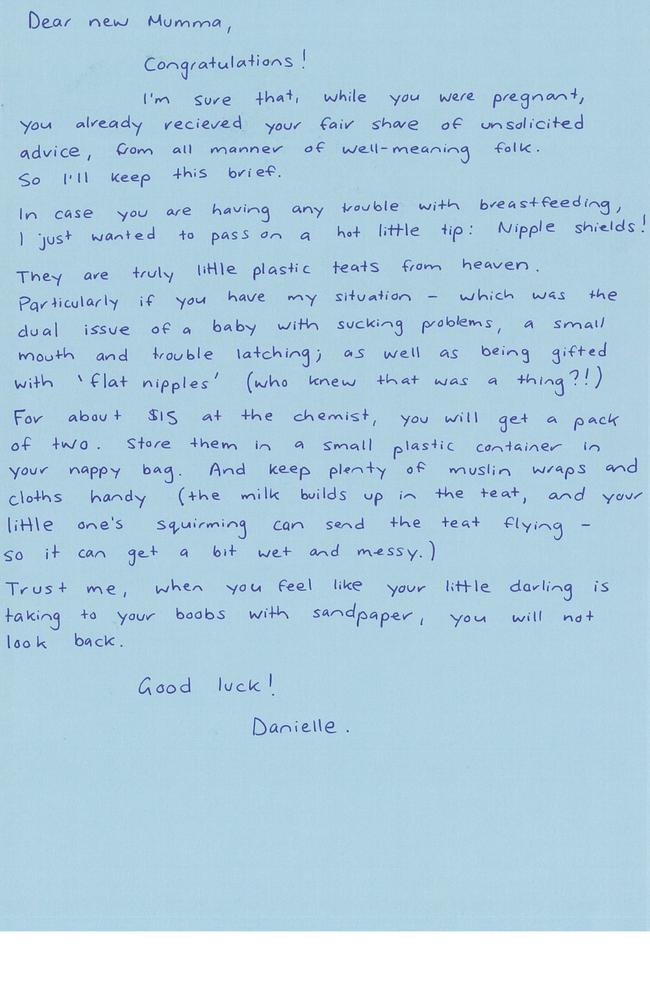 Dear new Mumma,
Congratulations!
I'm sure that, while you were pregnant,
you already recieved your fair share of unsolicited
advice, from all manner of well-meaning folk.
So I'll keep this brief.
In case you are having any trouble with breastfeeding,
I just wanted to pass on a hot little tip: Nipple shields!
They are truly little plastic teats from heaven.
Particularly if you have my situation - which was the
dual issue of a baby with sucking problems, a small
mouth and trouble latching; as well as being gifted
with 'flat nipples' (who knew that was a thing?!)
For about $15 at the chemist, you will get a pack
of two. Store them in a small plastic container in
your nappy bag. And keep plenty of muslin wraps and
cloths handy (the milk builds up in the teat, and your
little one's squirming can send the teat flying -
so it can get a bit wet and messy.)
Trust me, when you feel like your little darling is
taking to your boobs with sandpaper, you will not
look back.
Good luck!
Danielle.